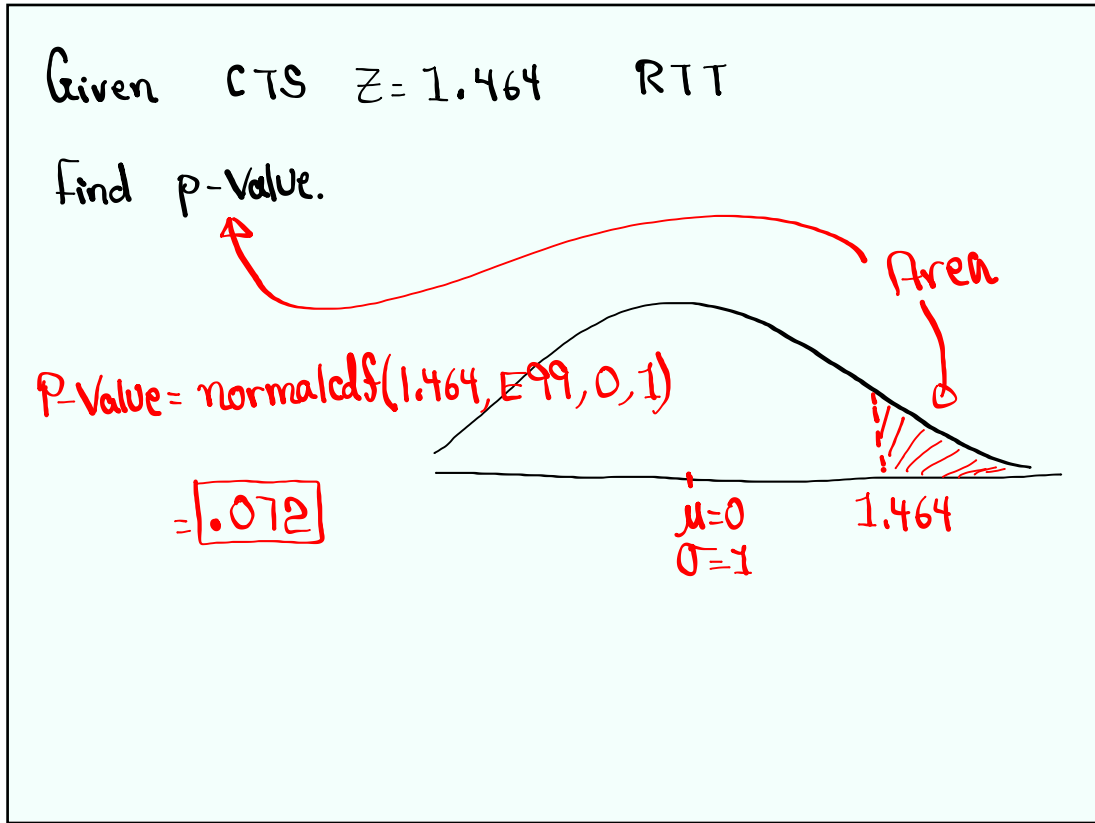 Given CTS Z=1.464 RTT
Find p-Value.
Area
P-Value= normalcdf(1.464, E99, 0, 1)
= .072
μ=0 1.464
σ=1